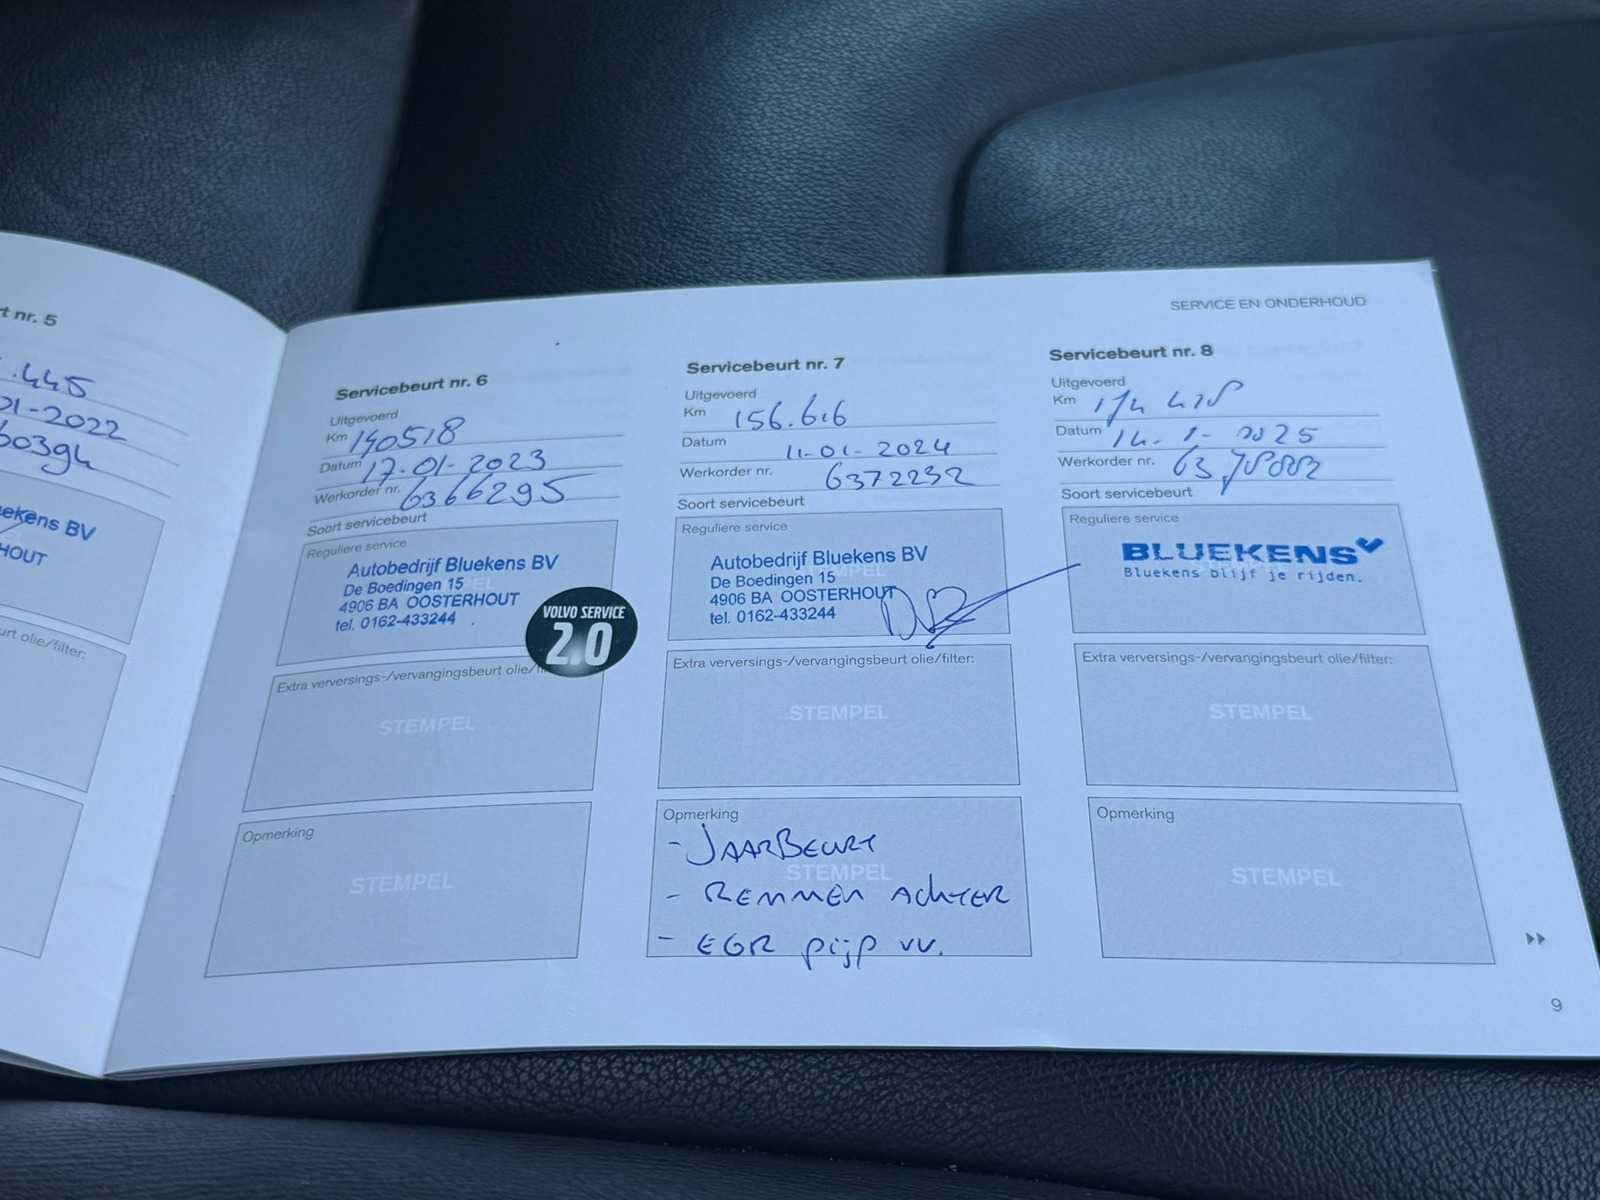 t nr. 5
.445
01-2022
60394
uekens BV
HOUT
urt olie/filter:
SERVICE EN ONDERHOUD
Servicebeurt nr. 6
Uitgevoerd
Km 140518
Datum 17-01-2023
Werkorder nr. 6366295
Soort servicebeurt
Reguliere service
Autobedrijf Bluekens BV
De Boedingen 15
4906 BA OOSTERHOUT
tel. 0162-433244
VOLVO SERVICE
2.0
Extra verversings-/vervangingsbeurt olie/fi
STEMPEL
Opmerking
STEMPEL
Servicebeurt nr. 7
Uitgevoerd
Km 156.616
Datum 11-01-2024
Werkorder nr. 6372232
Soort servicebeurt
Reguliere service
STEMPEL
Autobedrijf Bluekens BV
De Boedingen 15
4906 BA OOSTERHOUT
tel. 0162-433244
Extra verversings-/vervangingsbeurt olie/filter:
STEMPEL
Opmerking
STEMPEL
- JAARBEURT
- REMMEN ACHTER
- EGR pijp vv.
Servicebeurt nr. 8
Uitgevoerd
Km
Datum 14-1-2025
Werkorder nr.
Soort servicebeurt
Reguliere service
BLUEKENS
Bluekens blijf je rijden.
Extra verversings-/vervangingsbeurt olie/filter:
STEMPEL
Opmerking
STEMPEL
9